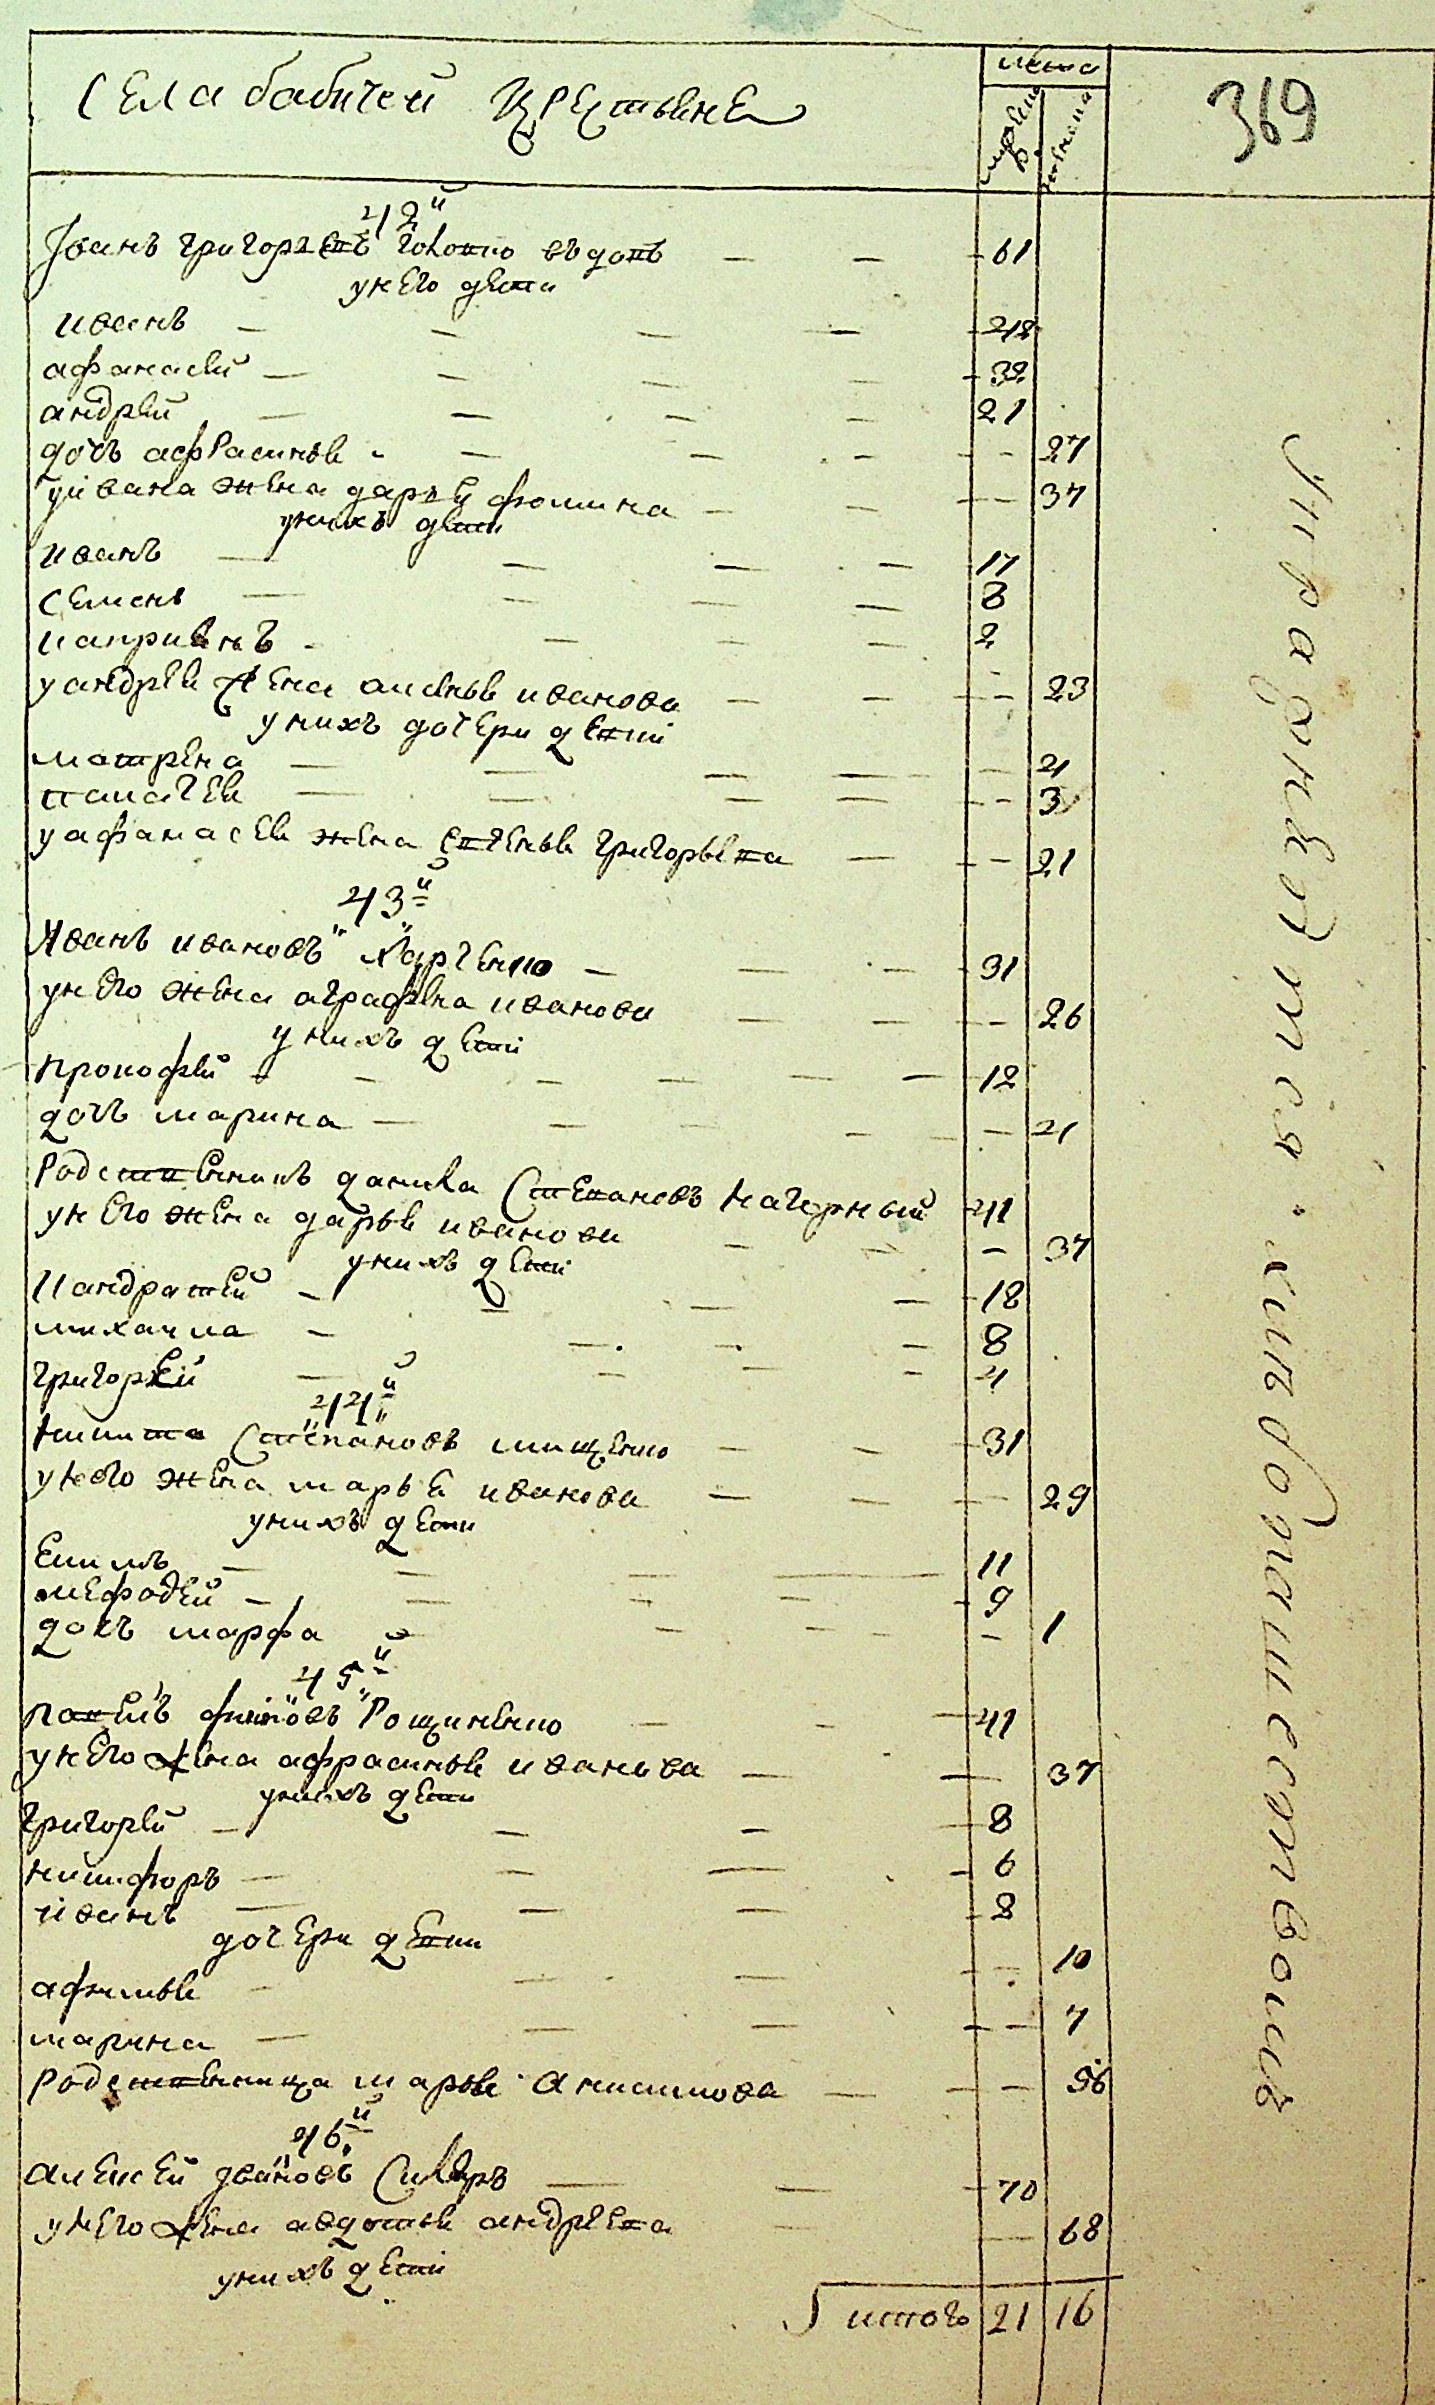 Села бабичей крестьяне
лета
мужеска
женска
369
42й
Іванъ григорьевъ головко вдовъ — — 61
у него дети
иванъ — — — — 42
афанасей — — — — 32
андрей — — — — 21
дочь афрасинья — — — — 27
у ивана жена дарья фомина — — — 37
у нихъ дети
иванъ — — — — 17
семенъ — — — — 8
каприянъ — — — 2
у андрея жена аксинья иванова — — — 23
у нихъ дочери дети
матрена — — — — 4
палагея — — — — 3
у афанасея жена евгенья григорьева — — 21
43й
Иванъ ивановъ харченко — — — 31
у него жена аграфена иванова — — — 26
у нихъ дети
прокофей — — — — 12
дочь марина — — — — 4
родственникъ данила Степановъ нагорный 41
у него жена дарья иванова — — — 37
у нихъ дети
кандратей — — — — 18
михайла — — — — 8
григорей — — — 4
44й
никита Степановъ мищенко — — 31
у него жена марья иванова — — — 29
у нихъ дети
екимъ — — — 11
мефодей — — — — 9
дочь марфа — — — — 1
45й
Рощиненко — — — 41
у него жена афрасинья иванова — — 37
у нихъ дети
григорей — — — — 8
никифоръ — — — — 6
иванъ — — — — 8
дочери дети
афимья — — — — 10
марина — — — — 7
родственница марья анисимова — — — 56
46й
алексей — — 70
у него жена авдотья андреева — — 68
у нихъ дети
итого 21 16
Упражняется хлебопашествомъ